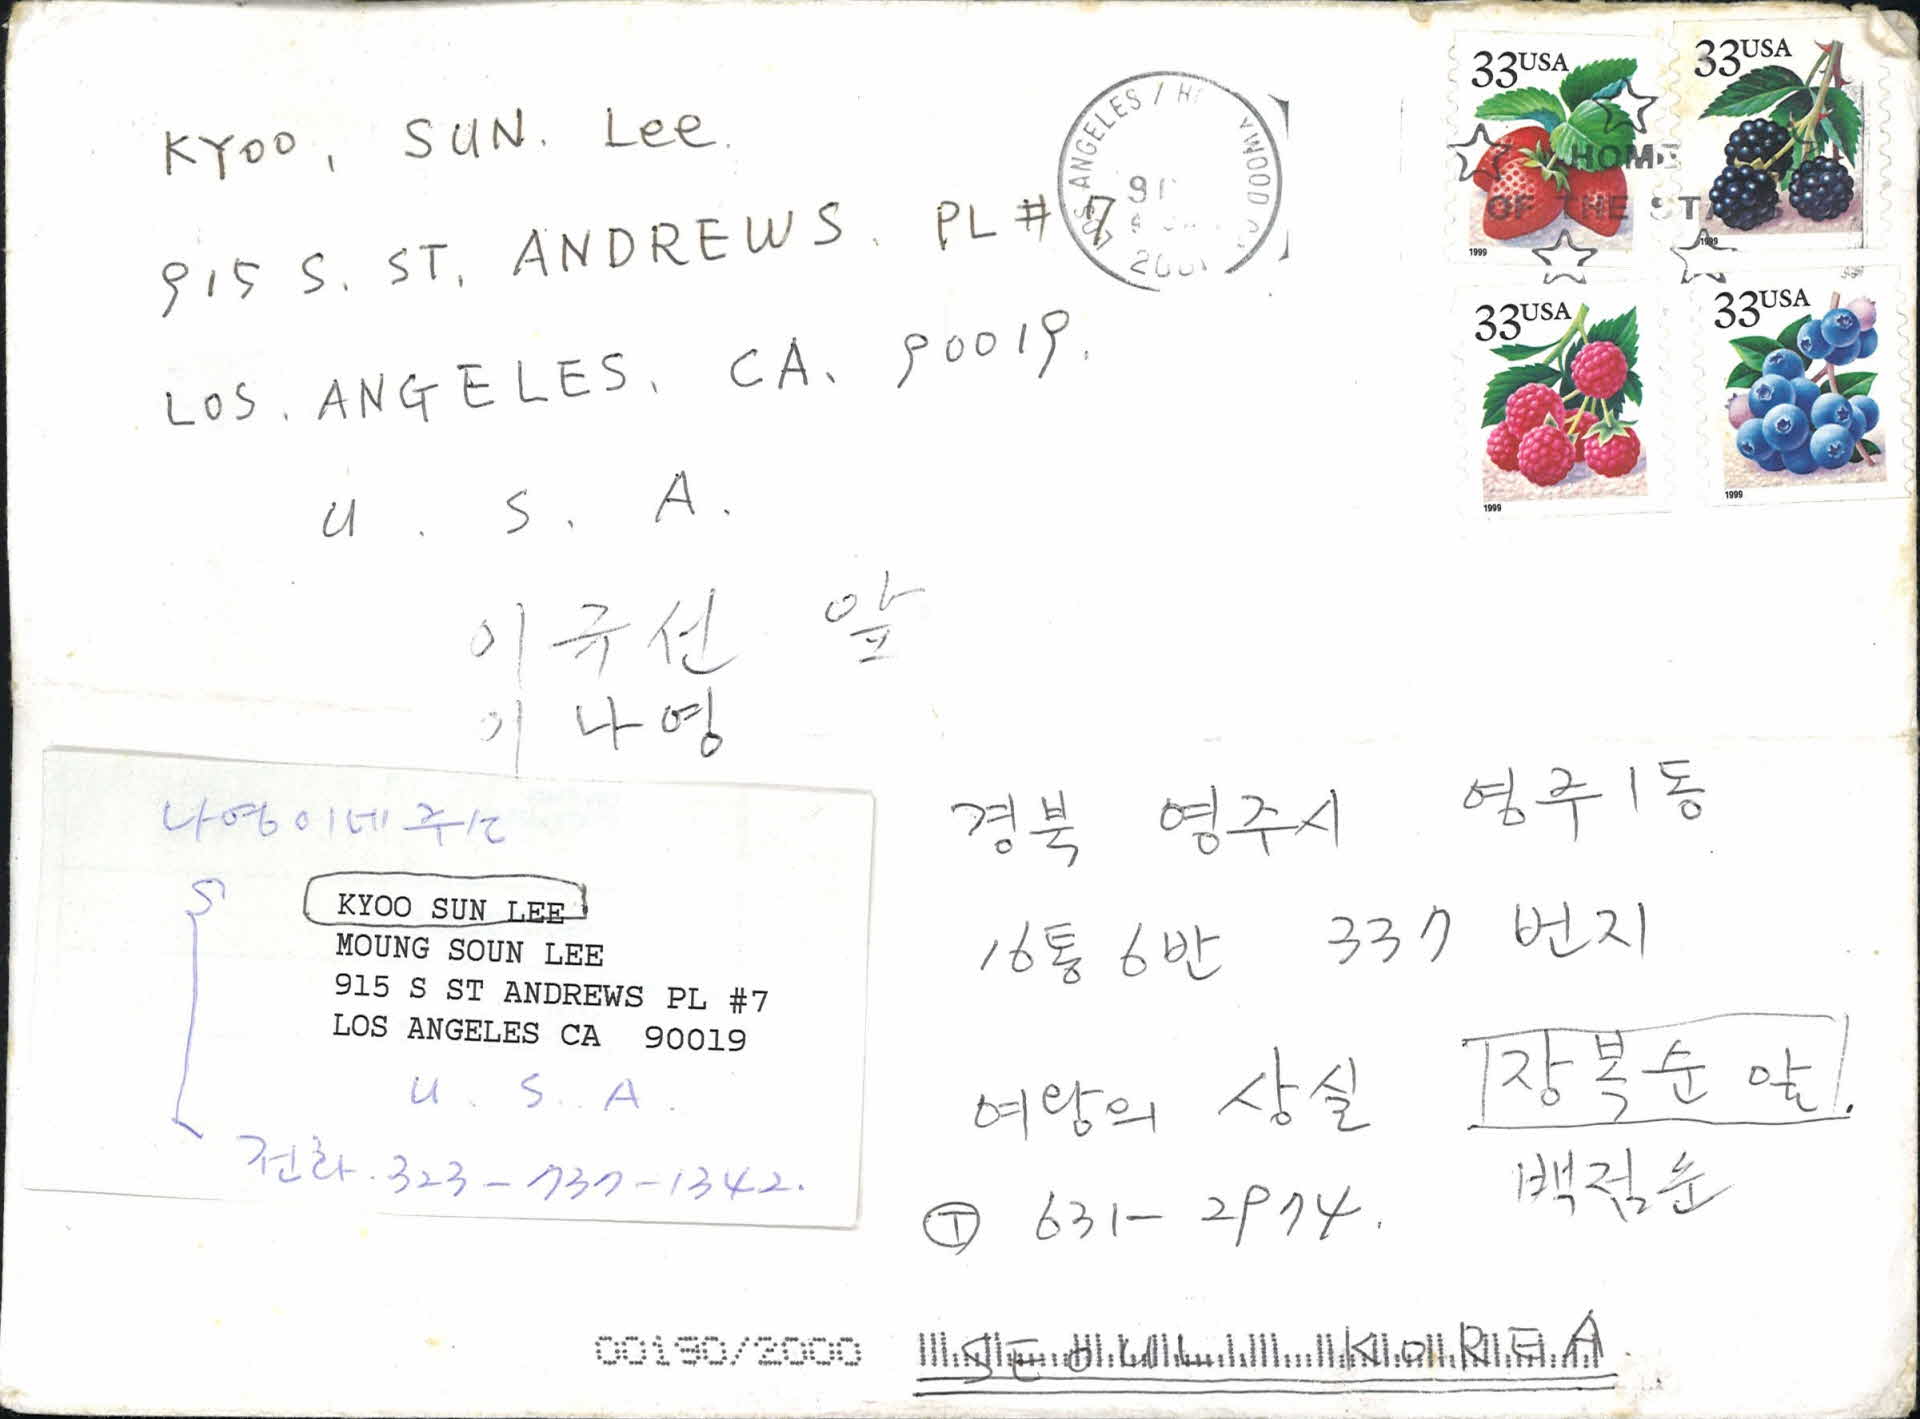 KYOO, SUN. Lee.
915 S. ST. ANDREWS. PL # 7
LOS. ANGELES. CA. 90019.
U. S. A.
이규선 앞
이나영
LOS ANGELES / H YWOOD
2001
33USA
1999
33USA
1999
33USA
1999
33USA
1999
HOME
OF THE STARS
나영이네 주소
KYOO SUN LEE
MOUNG SOUN LEE
915 S ST ANDREWS PL #7
LOS ANGELES CA 90019
U. S. A.
전화. 323-737-1342.
경북 영주시 영주1동
16통 6반 337 번지
여왕의 상실 장복순 앞.
백점순
Ⓣ 631-2974.
00190/2000
SEOUL KOREA